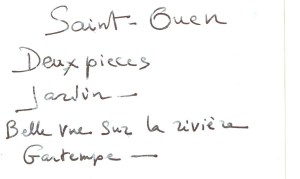 Saint-Ouen
Deux pieces
Jardin —
Belle vue sur la rivière
Gartempe —